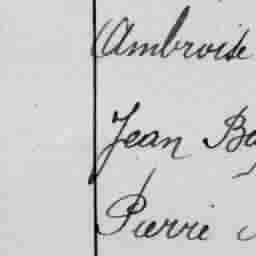 Ambroise
Jean Ba
Pierre